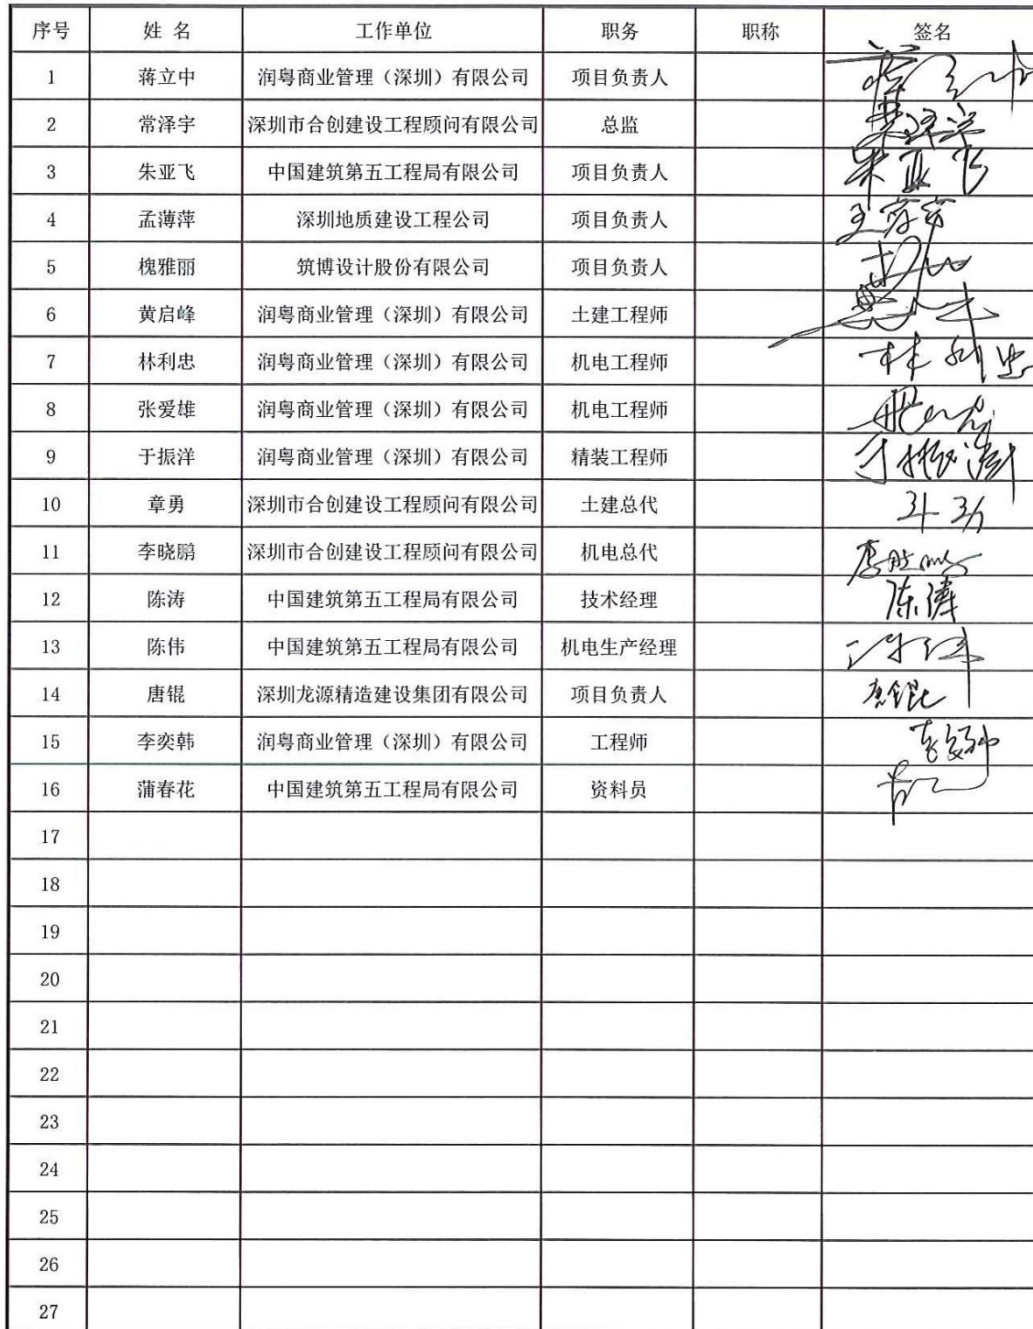 序号 姓 名 工作单位 职务 职称 签名
1 蒋立中 润粤商业管理（深圳）有限公司 项目负责人
2 常泽宇 深圳市合创建设工程顾问有限公司 总监
3 朱亚飞 中国建筑第五工程局有限公司 项目负责人 朱亚飞
4 孟薄萍 深圳地质建设工程公司 项目负责人
5 槐雅丽 筑博设计股份有限公司 项目负责人
6 黄启峰 润粤商业管理（深圳）有限公司 土建工程师
7 林利忠 润粤商业管理（深圳）有限公司 机电工程师 林利忠
8 张爱雄 润粤商业管理（深圳）有限公司 机电工程师
9 于振洋 润粤商业管理（深圳）有限公司 精装工程师
10 章勇 深圳市合创建设工程顾问有限公司 土建总代
11 李晓鹏 深圳市合创建设工程顾问有限公司 机电总代
12 陈涛 中国建筑第五工程局有限公司 技术经理 陈涛
13 陈伟 中国建筑第五工程局有限公司 机电生产经理
14 唐锟 深圳龙源精造建设集团有限公司 项目负责人 唐锟
15 李奕韩 润粤商业管理（深圳）有限公司 工程师
16 蒲春花 中国建筑第五工程局有限公司 资料员
17
18
19
20
21
22
23
24
25
26
27